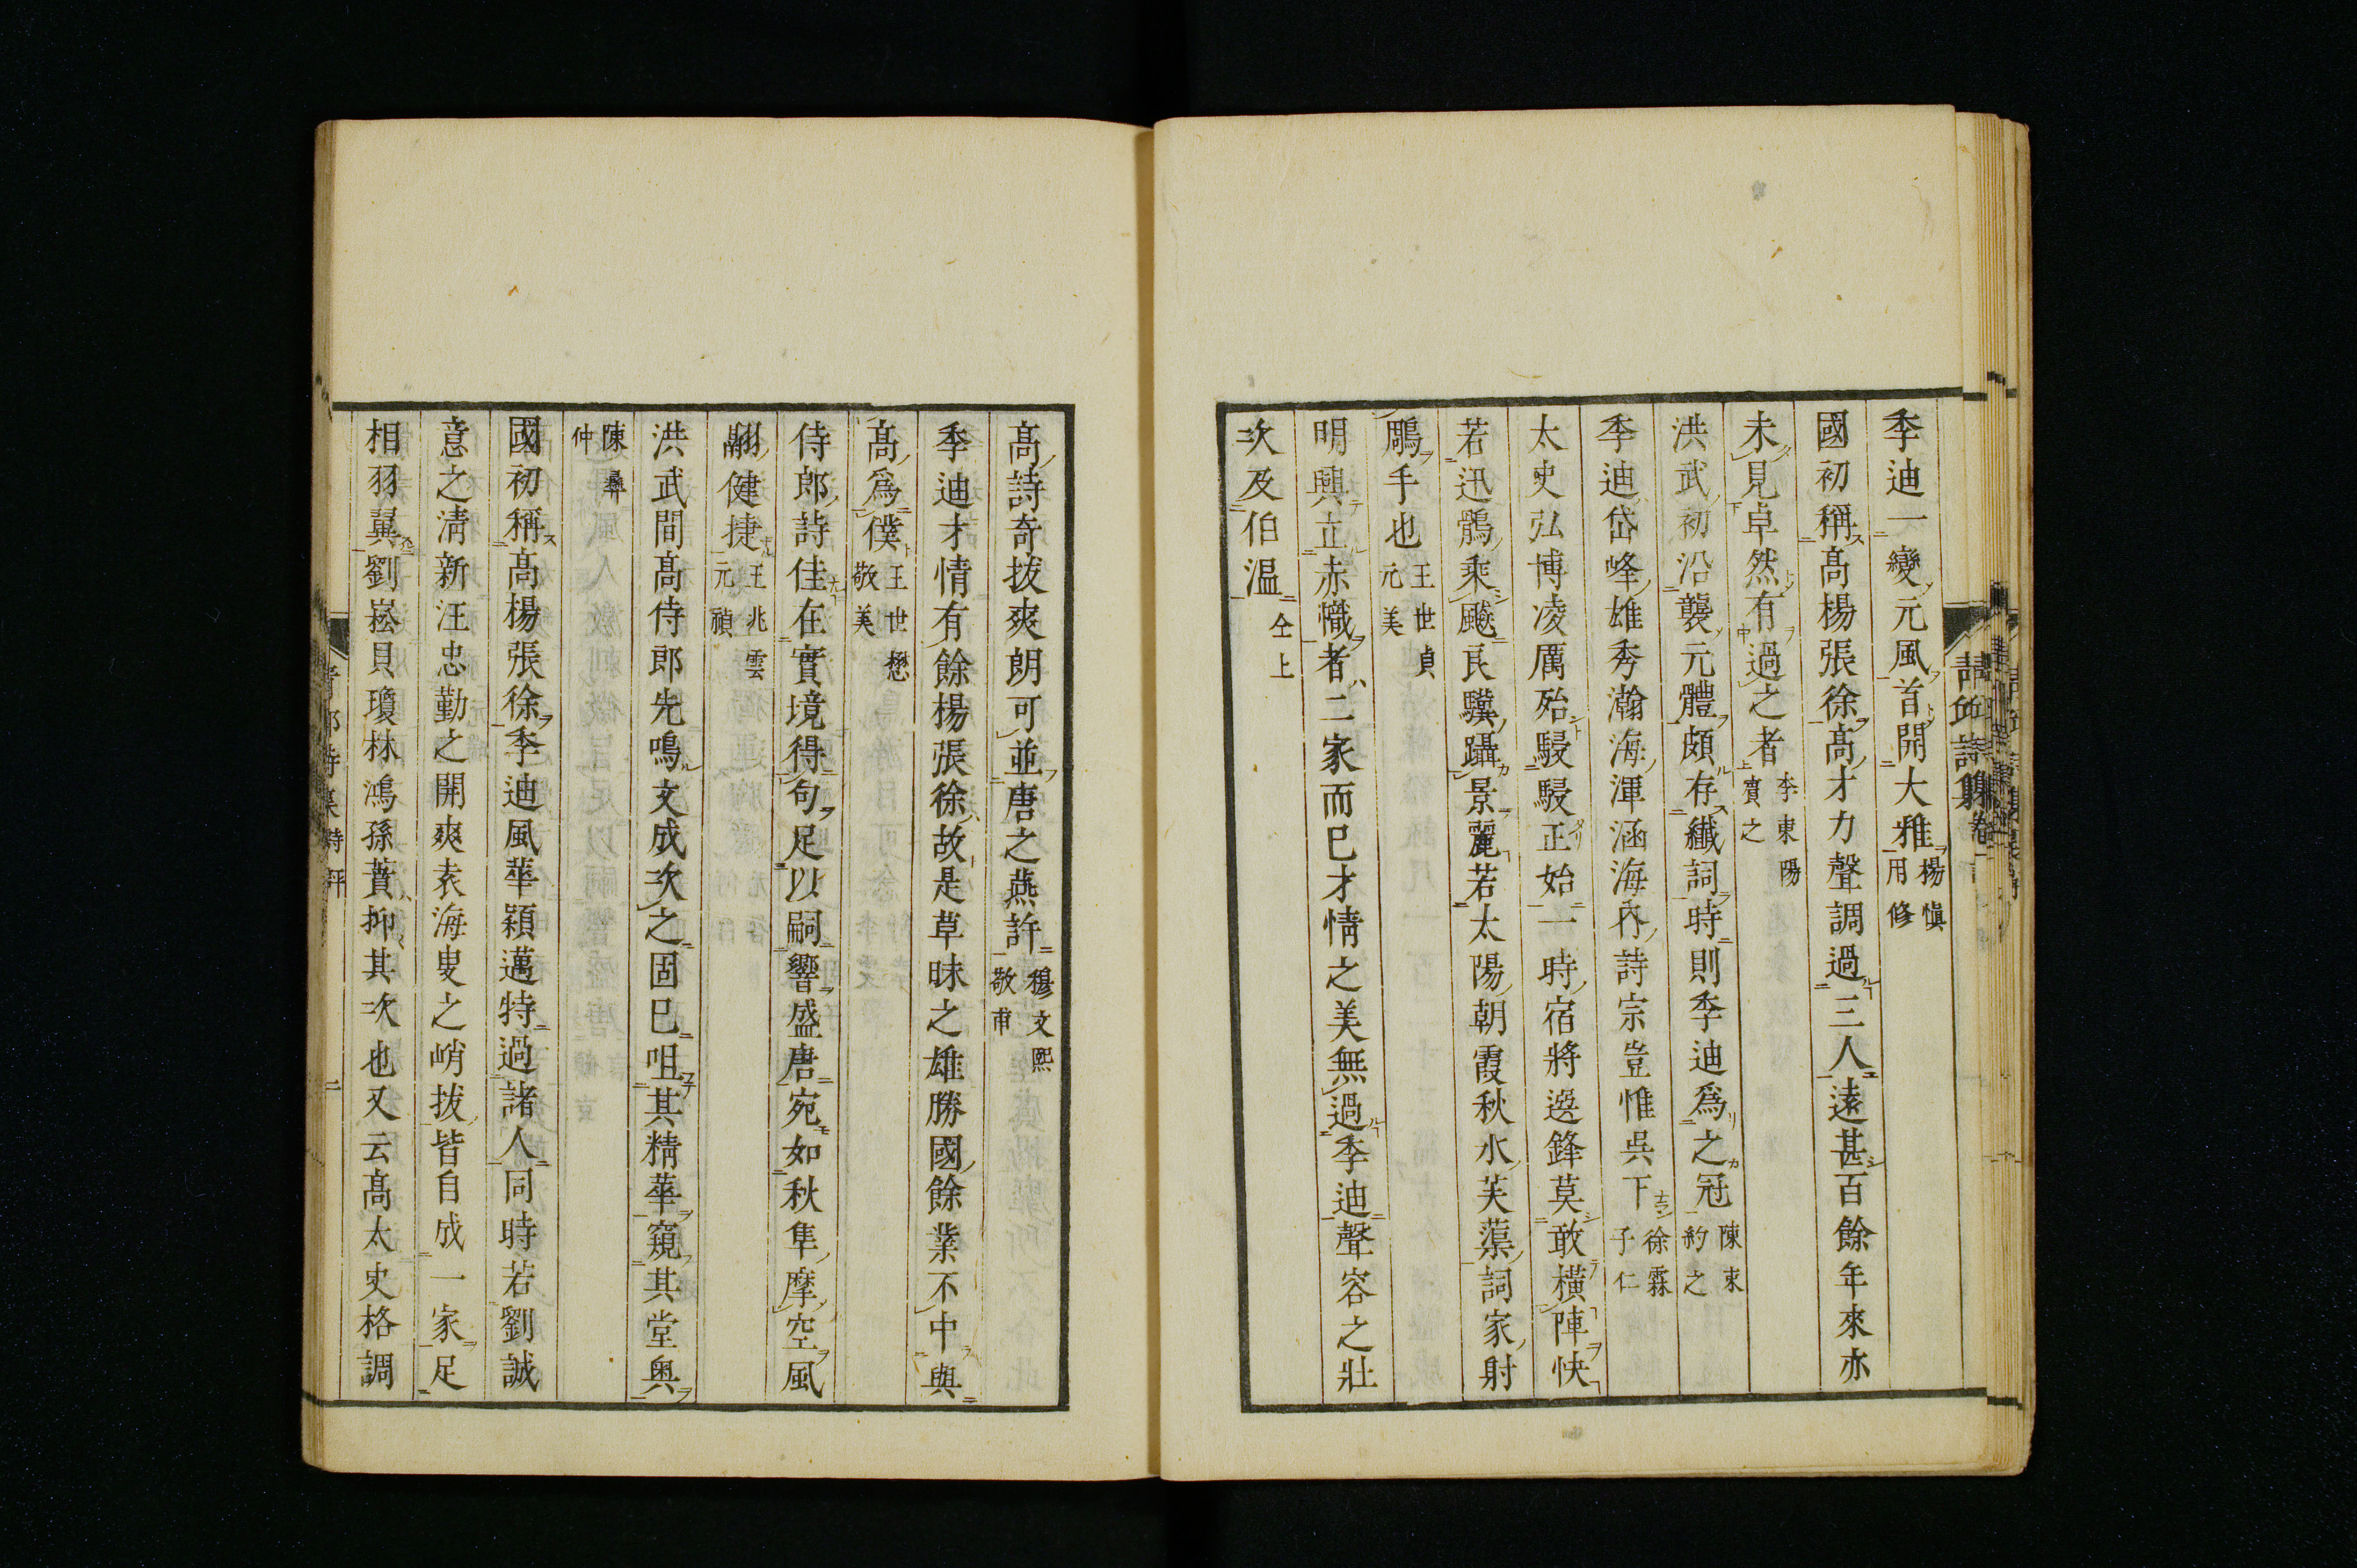 季迪一變元風首開大雅 楊愼用修
國初稱髙楊張徐髙才力聲調過三人遠甚百餘年來亦
未見卓然有過之者 李東陽賓之
洪武初沿襲元體頗存纖詞時則季迪爲之冠 陳束約之
季迪岱峰雄秀瀚海渾涵海內詩宗豈惟吳下 徐霖子仁
太史弘博凌厲殆駸駸正始一時宿將邊鋒莫敢橫陣快
若迅鶻乘飈良驥躡景麗若太陽朝霞秋水芙蕖詞家射
鵰手也 王世貞元美
明興立赤幟者二家而已才情之美無過季迪聲容之壯
次及伯温 仝上
髙詩奇拔爽朗可並唐之燕許 穆文熙敬甫
季迪才情有餘楊張徐故是草昧之雄勝國餘業不中與
髙爲僕 王世懋敬美
侍郎詩佳在實境得句足以嗣響盛唐宛如秋隼摩空風
翮健捷 王兆雲元禎
洪武間髙侍郎先鳴文成次之固已咀其精華窺其堂奥
陳彝仲
國初稱髙楊張徐季迪風華穎邁特過諸人同時若劉誠
意之淸新汪忠勤之開爽袁海叟之峭拔皆自成一家足
相羽翼劉崧貝瓊林鴻孫蕡抑其次也又云髙太史格調
青邱詩集 詩評 二